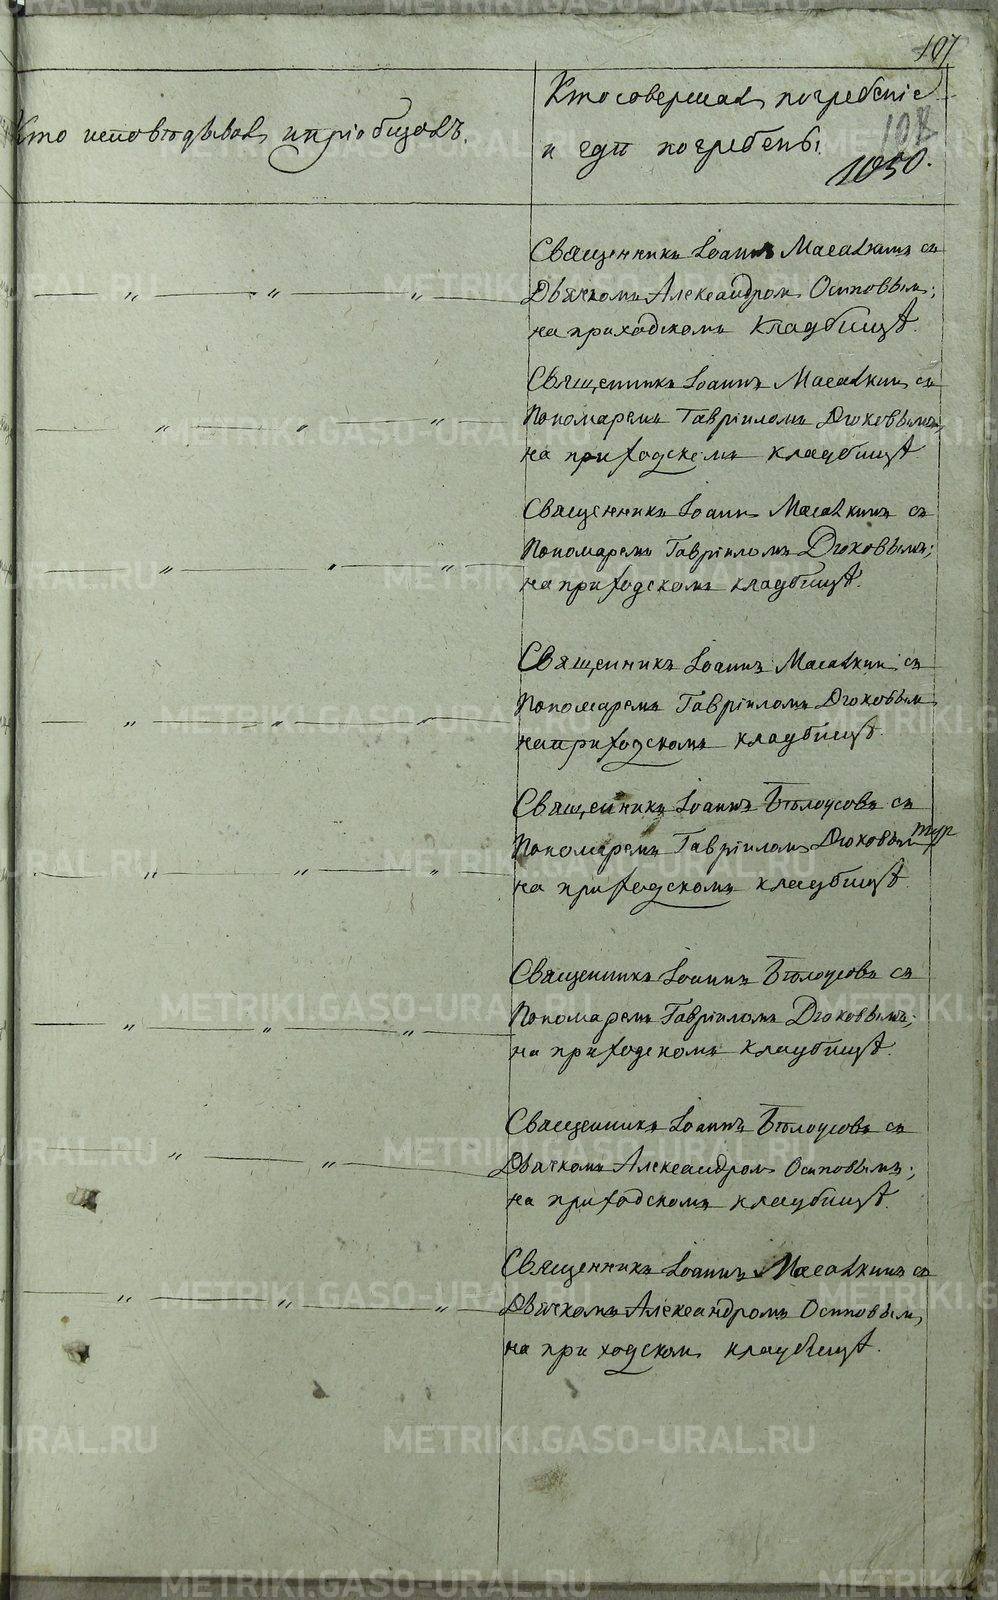 107
Кто исповѣдывалъ и пріобщалъ.
Кто совершалъ погребеніе
и гдѣ погребены.
108
1050.
Священникъ Іоаннъ Масалкинъ съ
Дьячкомъ Александромъ Осиповымъ;
на приходскомъ кладбищѣ.
Священникъ Іоаннъ Масалкинъ съ
Пономаремъ Гавріиломъ Дюковымъ,
на приходскомъ кладбищѣ.
Священникъ Іоаннъ Масалкинъ съ
Пономаремъ Гавріиломъ Дюковымъ;
на приходскомъ кладбищѣ.
Священникъ Іоаннъ Масалкинъ съ
Пономаремъ Гавріиломъ Дюковымъ
на приходскомъ кладбищѣ.
Священникъ Іоаннъ Бѣлоусовъ съ
Пономаремъ Гавріиломъ Дюковым
на приходскомъ кладбищѣ.
Священникъ Іоаннъ Бѣлоусовъ съ
Пономаремъ Гавріиломъ Дюковымъ;
на приходскомъ кладбищѣ.
Священникъ Іоаннъ Бѣлоусовъ съ
Дьячкомъ Александромъ Осиповымъ;
на приходскомъ кладбищѣ.
Священникъ Іоаннъ Масалкинъ съ
Дьячкомъ Александромъ Осиповымъ,
на приходскомъ кладбищѣ.
METRIKI.GASO-URAL.RU